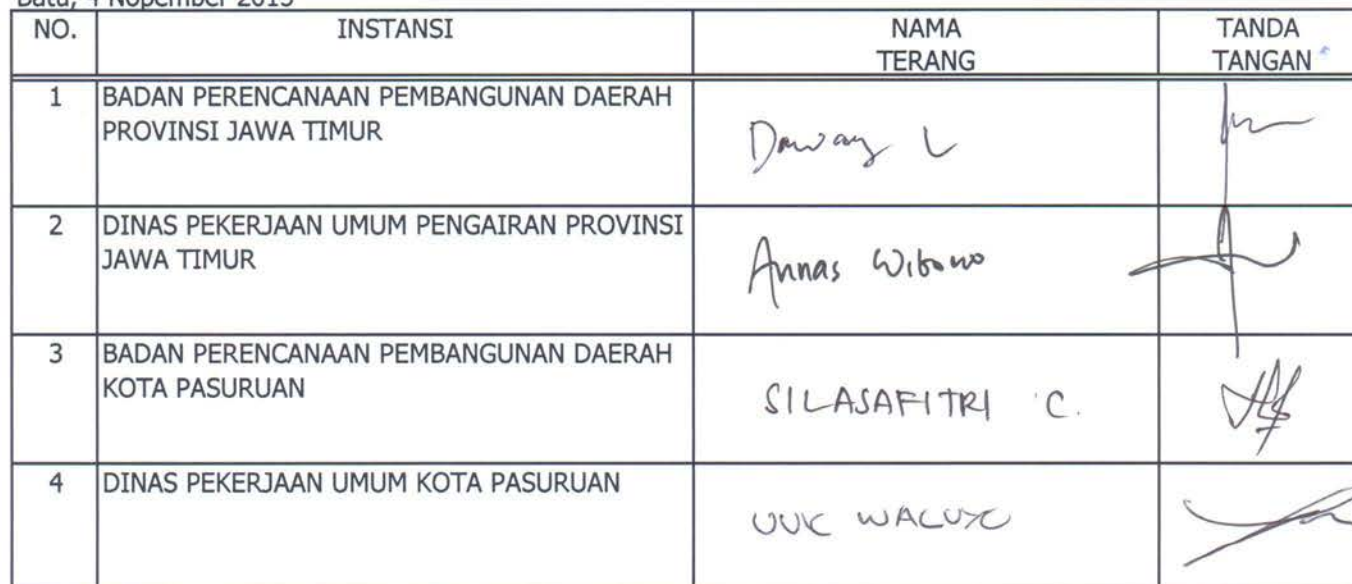 Batu, 4 Nopember 2015
NO. INSTANSI NAMA TERANG TANDA TANGAN
1 BADAN PERENCANAAN PEMBANGUNAN DAERAH
PROVINSI JAWA TIMUR
2 DINAS PEKERJAAN UMUM PENGAIRAN PROVINSI
JAWA TIMUR
Annas Wibowo
3 BADAN PERENCANAAN PEMBANGUNAN DAERAH
KOTA PASURUAN
SILASAFITRI C.
4 DINAS PEKERJAAN UMUM KOTA PASURUAN
UUK WALUYO